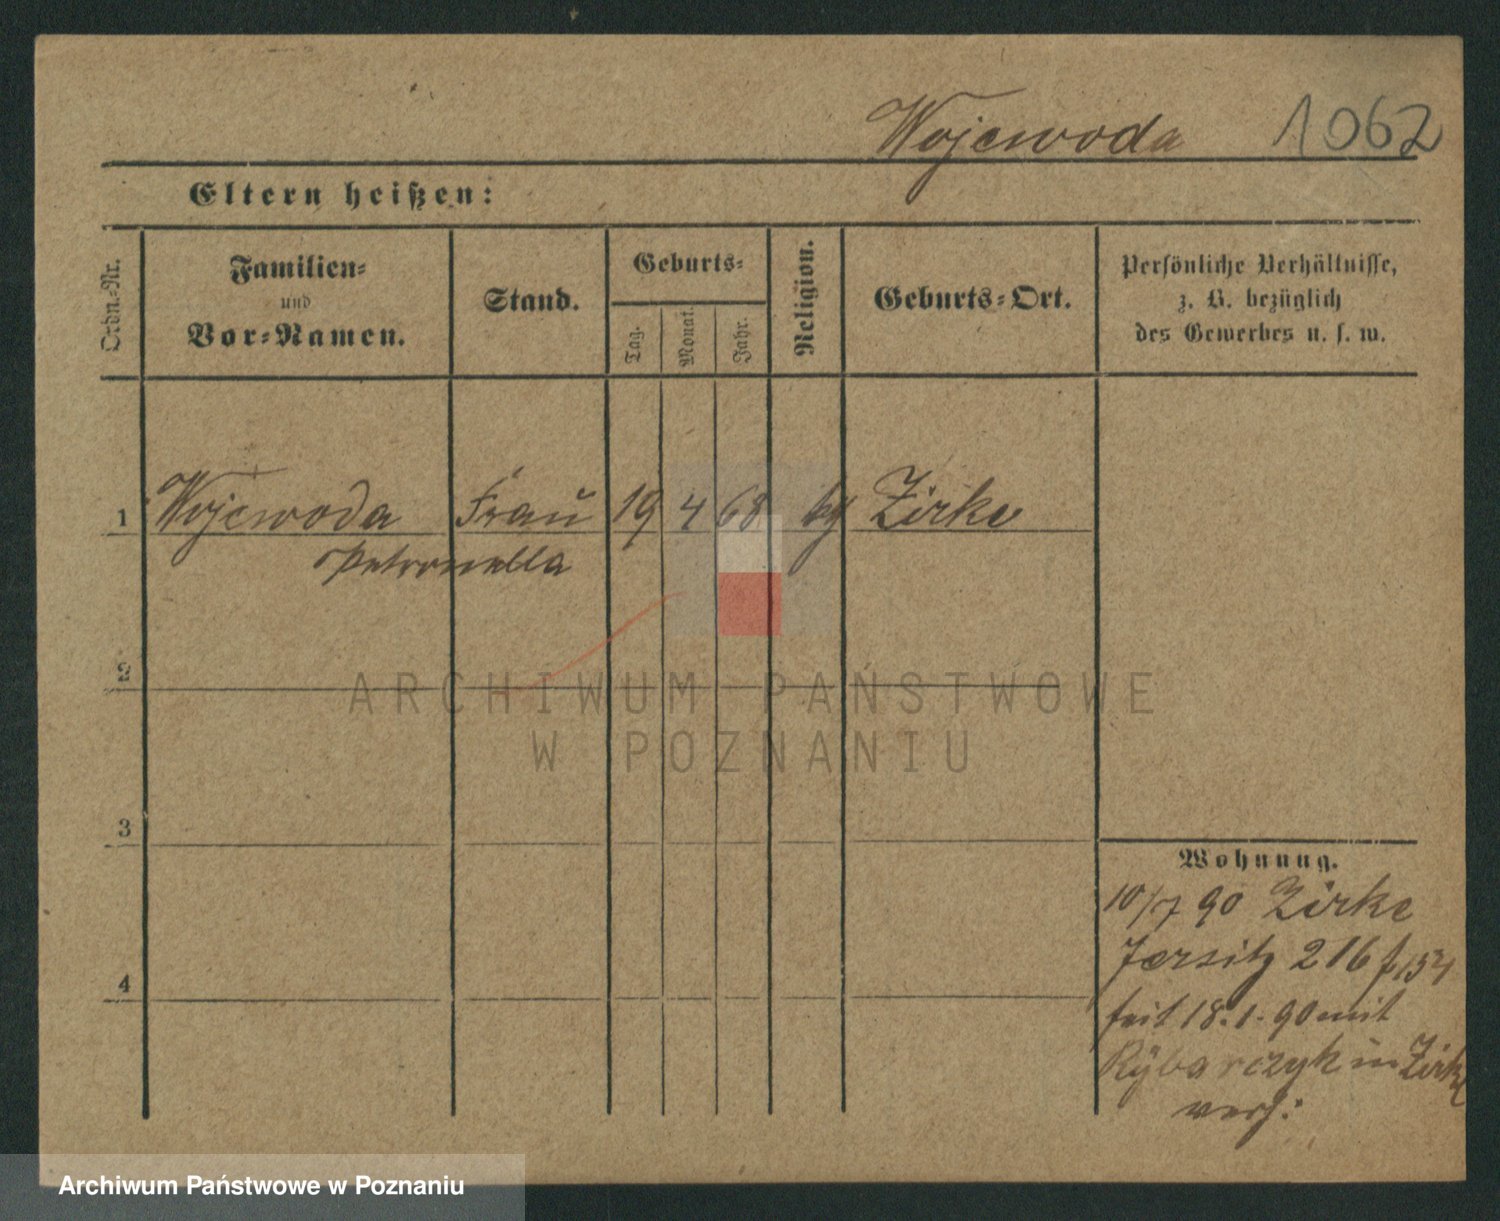 Wojewoda 1062
Eltern heißen:
Ordn.-Nr.
Familien-
und
Vor-Namen.
Stand.
Geburts-
Tag.
Monat.
Jahr.
Religion.
Geburts-Ort.
Persönliche Verhältnisse,
z. B. bezüglich
des Gewerbes u. s. w.
1 Wojewoda Frau 19 4 68 Zirke
Petronella
2
3
4
Wohnung.
10/7 90 Zirke
Jersitz 216
seit 18.1.90 mit
Rybarczyk in Zirke
verh:
ARCHIWUM PAŃSTWOWE
W POZNANIU
Archiwum Państwowe w Poznaniu